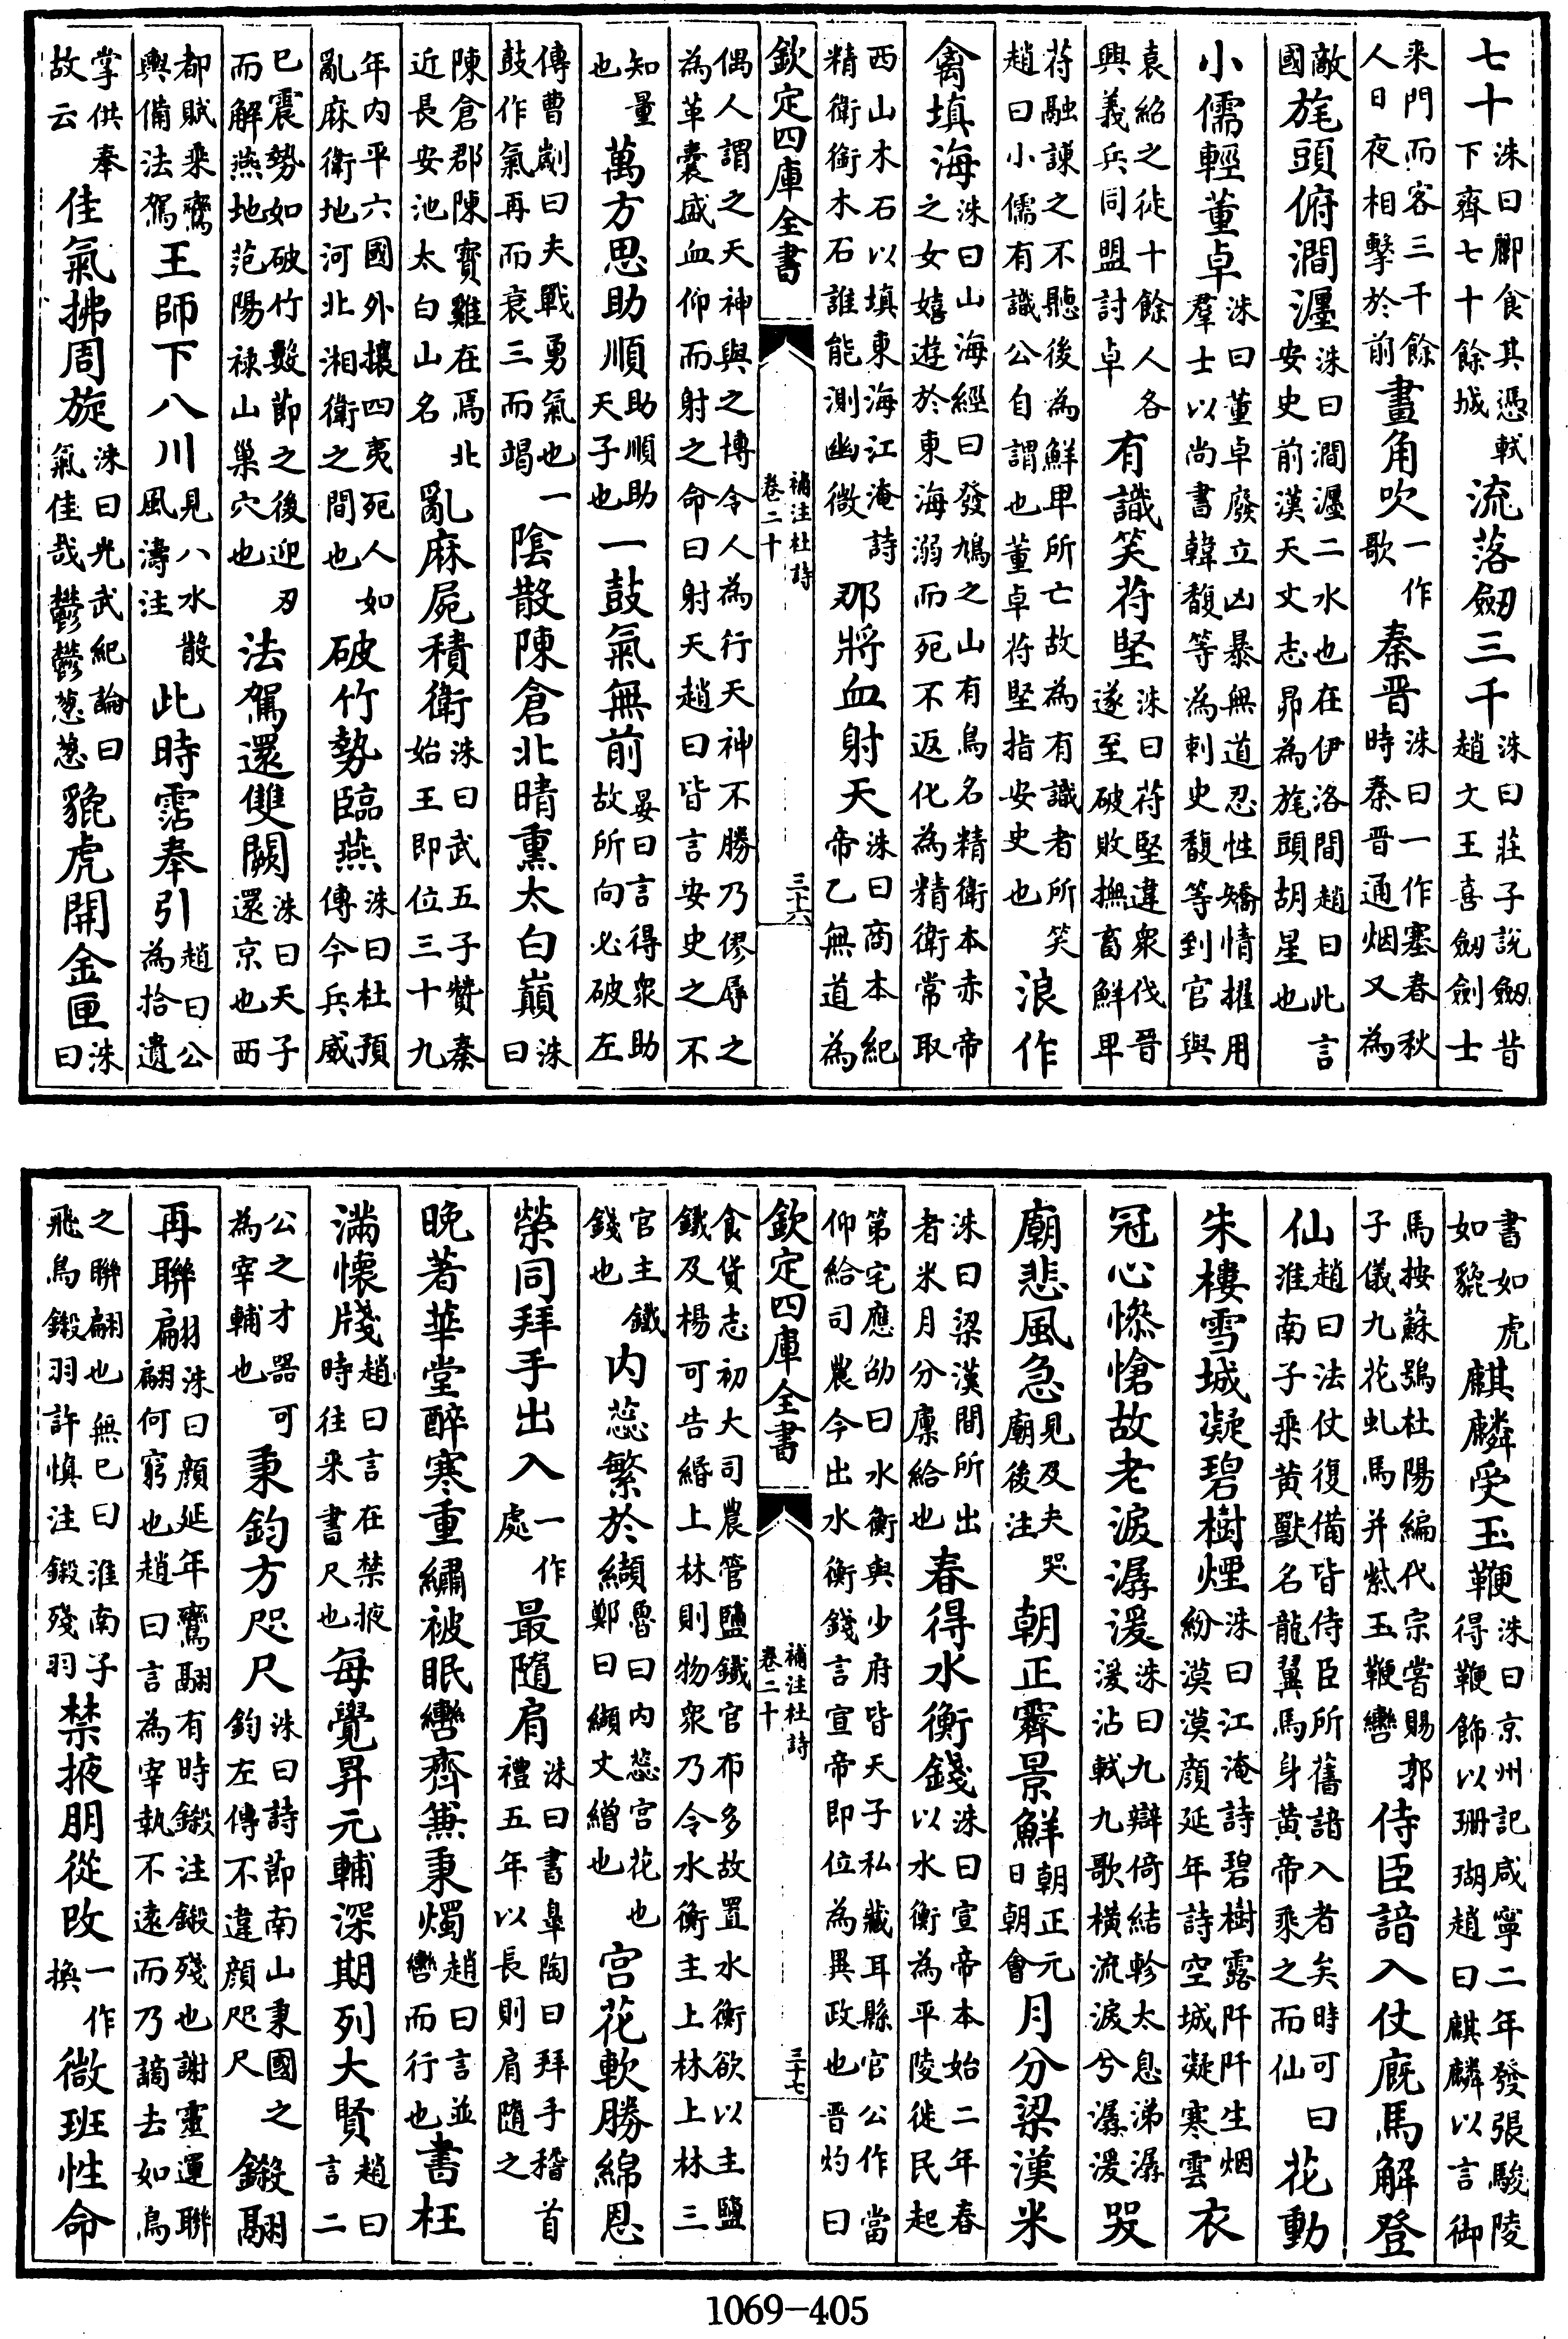 七十洙曰酈食其憑軾下齊七十餘城流落劒三千洙曰莊子説劒昔趙文王喜劒劍士
来門而客三千餘人日夜相擊於前畫角吹一作歌秦晋洙曰一作塞春秋時秦晋通烟又為
敵國旄頭俯澗瀍洙曰澗瀍二水也在伊洛間趙曰此言安史前漢天文志昴為旄頭胡星也
小儒輕董卓洙曰董卓廢立凶暴無道忍性矯情擢用羣士以尚書韓馥等為刺史馥等到官與
袁紹之徒十餘人各興義兵同盟討卓有識笑苻堅洙曰苻堅違衆伐晉遂至破敗撫畜鮮卑
苻融諫之不聽後為鮮卑所亡故為有識者所笑趙曰小儒有識公自謂也董卓苻堅指安史也浪作
禽填海洙曰山海經曰發鳩之山有鳥名精衛本赤帝之女嬉遊於東海溺而死不返化為精衛常取
西山木石以填東海江淹詩精衛衘木石誰能測幽微那將血射天洙曰商本紀帝乙無道為
欽定四庫全書 補注杜詩卷二十 三十六
偶人謂之天神與之博令人為行天神不勝乃僇辱之為革囊盛血仰而射之命曰射天趙曰皆言安史之不
知量也萬方思助順助順助天子也一鼓氣無前晏曰言得衆助故所向必破左
傳曹劌曰夫戰勇氣也一鼓作氣再而衰三而竭陰散陳倉北晴熏太白巔洙曰
陳倉郡陳寳雞在焉北近長安池太白山名亂麻屍積衛洙曰武五子贊秦始王即位三十九
年内平六國外攘四夷死人如亂麻衛地河北湘衛之間也破竹勢臨燕洙曰杜預傳今兵威
已震勢如破竹數節之後迎刃而解燕地范陽禄山巢穴也法駕還雙闕洙曰天子還京也西
都賦乘鸞輿備法駕王師下八川見八水散風濤注此時霑奉引趙曰公為拾遺
掌供奉故云佳氣拂周旋洙曰光武紀論曰氣佳哉鬱鬱葱葱貔虎開金匣洙曰
書如虎如貔麒麟受玉鞭洙曰京州記咸寧二年發張駿陵得鞭飾以珊瑚趙曰麒麟以言御
馬按蘇鶚杜陽編代宗嘗賜郭子儀九花虬馬并紫玉鞭轡侍臣諳入仗廐馬解登
仙趙曰法仗復備皆侍臣所舊諳入者矣時可曰淮南子乘黄獸名龍翼馬身黄帝乘之而仙花動
朱樓雪城凝碧樹煙洙曰江淹詩碧樹露阡阡生烟紛漠漠顔延年詩空城凝寒雲衣
冠心慘愴故老淚潺湲洙曰九辯倚結軫太息涕潺湲沾軾九歌横流淚兮潺湲哭
廟悲風急見及夫哭廟後注朝正霽景鮮朝正元日朝會月分梁漢米
洙曰梁漢間所出者米月分廪給也春得水衡錢洙曰宣帝本始二年春以水衡為平陵徙民起
第宅應劭曰水衡與少府皆天子私藏耳縣官公作當仰給司農今出水衡錢言宣帝即位為異政也晋灼曰
欽定四庫全書 補注杜詩卷二十 三十七
食貨志初大司農管鹽鐵官布多故置水衡欲以主鹽鐵及楊可告緡上林則物衆乃令水衡主上林上林三
官主鐵錢也内蕊繁於纈魯曰内蕊宫花也鄭曰纈文繒也宫花軟勝綿恩
榮同拜手出入一作處最隨肩洙曰書臯陶曰拜手稽首禮五年以長則肩隨之
晚著華堂醉寒重繡被眠轡齊兼秉燭趙曰言並轡而行也書枉
滿懐牋趙曰言在禁掖時往来書尺也每覺昇元輔深期列大賢趙曰言二
公之才器可為宰輔也秉鈞方咫尺洙曰詩節南山秉國之鈞左傳不違顔咫尺鎩翮
再聯翩洙曰顔延年鸞翮有時鎩注鎩殘也謝靈運聯翩何窮也趙曰言為宰執不遠而乃謫去如鳥
之聯翩也無已曰淮南子飛鳥鎩羽許慎注鎩殘羽禁掖朋從改一作換微班性命
1069-405